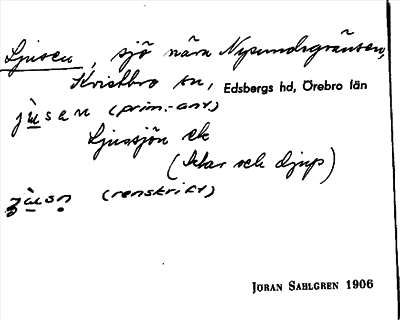 Ljusen, sjö nära Nysundsgränsen,
Kvistbro sn, Edsbergs hd, Örebro län
jʉ̀sen (prim.-ant)
Ljussjön ek
(klar och djup)
(renskrift)
JÖRAN SAHLGREN 1906